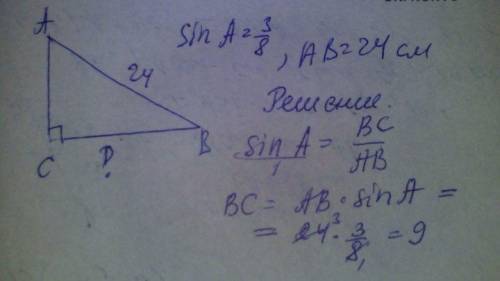 A
24
C
?
B
sin A = 3/8, AB = 24 см
Решение.
sin A / 1 = BC / AB
BC = AB · sin A =
= 24³ · 3/8₁ = 9